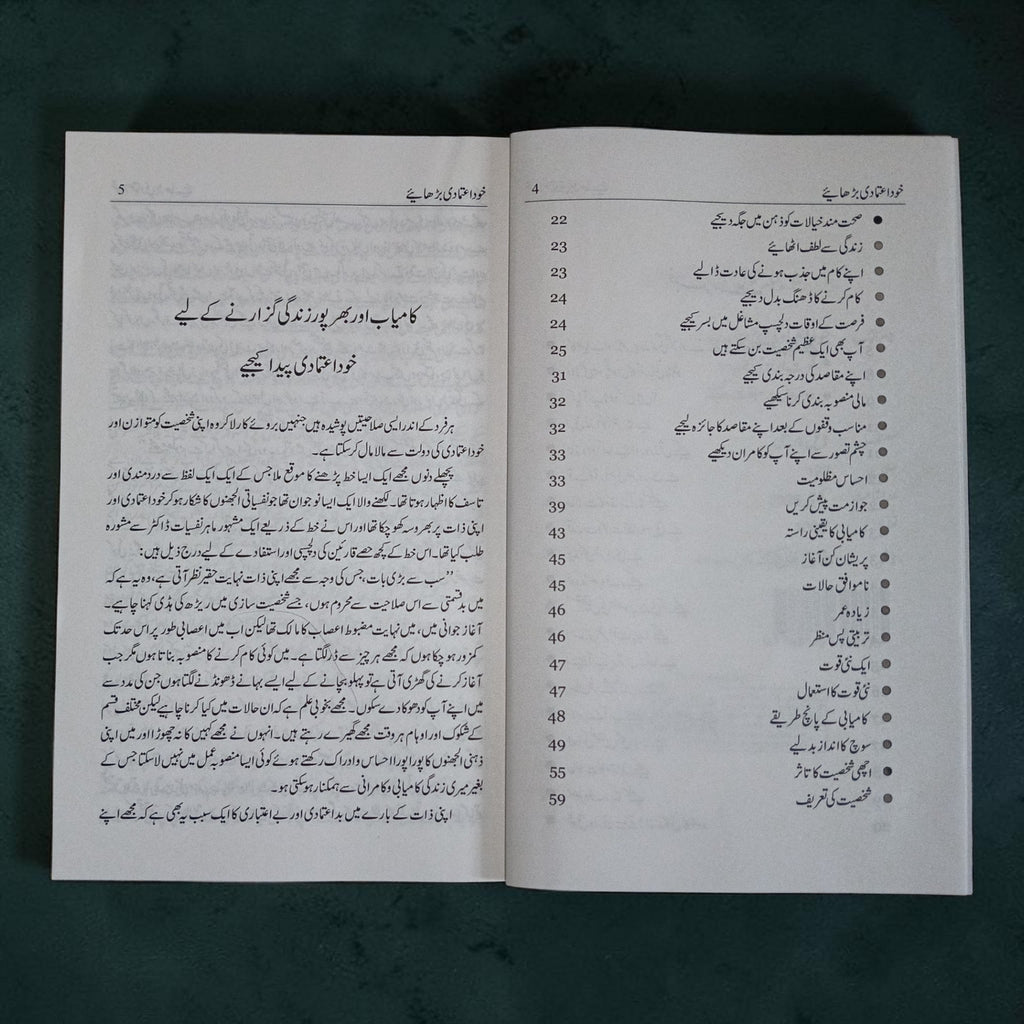 خود اعتمادی بڑھائیے 4
● صحت مند خیالات کو ذہن میں جگہ دیجیے 22
● زندگی سے لطف اٹھائیے 23
● اپنے کام میں جذب ہونے کی عادت ڈالیے 23
● کام کرنے کا ڈھنگ بدل دیجیے 24
● فرصت کے اوقات دلچسپ مشاغل میں بسر کیجیے 24
● آپ بھی ایک عظیم شخصیت بن سکتے ہیں 25
● اپنے مقاصد کی درجہ بندی کیجیے 31
● مالی منصوبہ بندی کرنا سیکھیے 32
● مناسب وقفوں کے بعد اپنے مقاصد کا جائزہ لیجیے 32
● چشم تصور سے اپنے آپ کو کامران دیکھیے 33
● احساس مظلومیت 33
● جواز مت پیش کریں 39
● کامیابی کا یقینی راستہ 43
● پریشان کن آغاز 45
● ناموافق حالات 45
● زیادہ عمر 46
● تربیتی پس منظر 46
● ایک نئی قوت 47
● نئی قوت کا استعمال 47
● کامیابی کے پانچ طریقے 48
● سوچ کا انداز بدلیے 49
● اچھی شخصیت کا تاثر 55
● شخصیت کی تعریف 59
خود اعتمادی بڑھائیے 5
کامیاب اور بھرپور زندگی گزارنے کے لیے
خود اعتمادی پیدا کیجیے
ہر فرد کے اندر ایسی صلاحیتیں پوشیدہ ہیں جنہیں بروئے کار لا کر وہ اپنی شخصیت کو متوازن اور
خود اعتمادی کی دولت سے مالا مال کر سکتا ہے۔
پچھلے دنوں مجھے ایک ایسا خط پڑھنے کا موقع ملا جس کے ایک ایک لفظ سے درد مندی اور
تاسف کا اظہار ہوتا تھا۔ لکھنے والا ایک ایسا نوجوان تھا جو نفسیاتی الجھنوں کا شکار ہو کر خود اعتمادی اور
اپنی ذات پر بھروسہ کھو چکا تھا اور اس نے خط کے ذریعے ایک مشہور ماہر نفسیات ڈاکٹر سے مشورہ
طلب کیا تھا۔ اس خط کے کچھ حصے قارئین کی دلچسپی اور استفادے کے لیے درج ذیل ہیں:
’’سب سے بڑی بات، جس کی وجہ سے مجھے اپنی ذات نہایت حقیر نظر آتی ہے، وہ یہ ہے کہ
میں بدقسمتی سے اس صلاحیت سے محروم ہوں، جسے شخصیت سازی میں ریڑھ کی ہڈی کہنا چاہیے۔
آغاز جوانی میں، میں نہایت مضبوط اعصاب کا مالک تھا لیکن اب میں اعصابی طور پر اس حد تک
کمزور ہو چکا ہوں کہ مجھے ہر چیز سے ڈر لگتا ہے۔ میں کوئی کام کرنے کا منصوبہ بناتا ہوں مگر جب
آغاز کرنے کی گھڑی آتی ہے تو پہلو بچانے کے لیے ایسے بہانے ڈھونڈنے لگتا ہوں جن کی مدد سے
میں اپنے آپ کو دھوکا دے سکوں۔ مجھے بخوبی علم ہے کہ ان حالات میں کیا کرنا چاہیے لیکن مختلف قسم
کے شکوک اور اوہام ہر وقت مجھے گھیرے رہتے ہیں۔ انہوں نے مجھے کہیں کا نہ چھوڑا اور میں اپنی
ذہنی الجھنوں کا پورا پورا احساس و ادراک رکھتے ہوئے کوئی ایسا منصوبہ عمل میں نہیں لا سکتا جس کے
بغیر میری زندگی کامیابی و کامرانی سے ہمکنار ہو سکتی ہو۔
اپنی ذات کے بارے میں بداعتمادی اور بے اعتباری کا ایک سبب یہ بھی ہے کہ مجھے اپنے